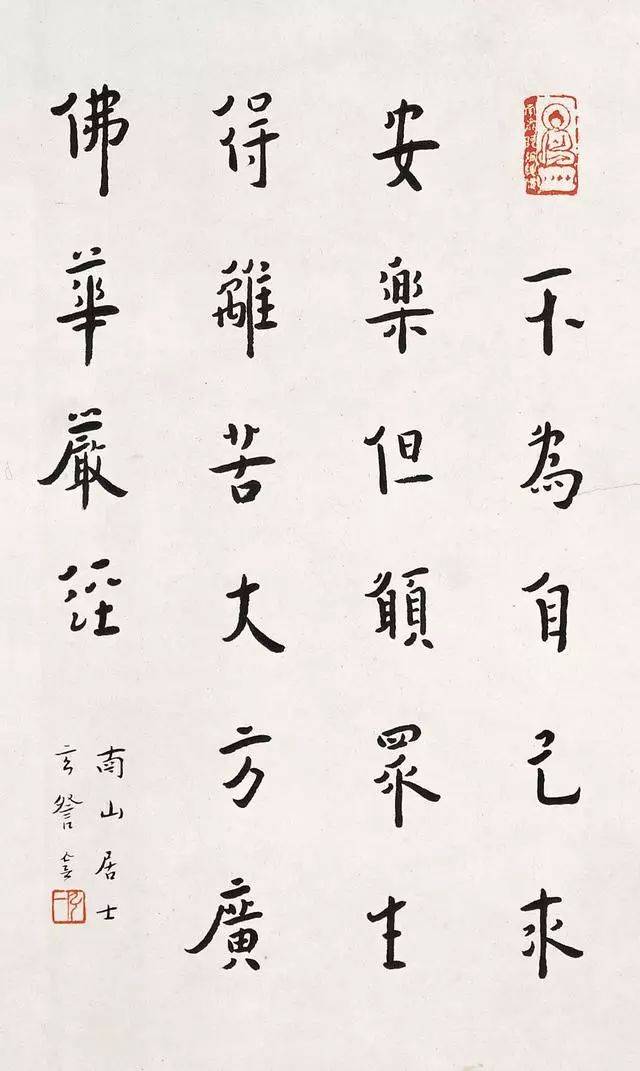 不為自己求
安樂但願眾生
得離苦大方廣
佛華嚴經
南山居士
玄詧書